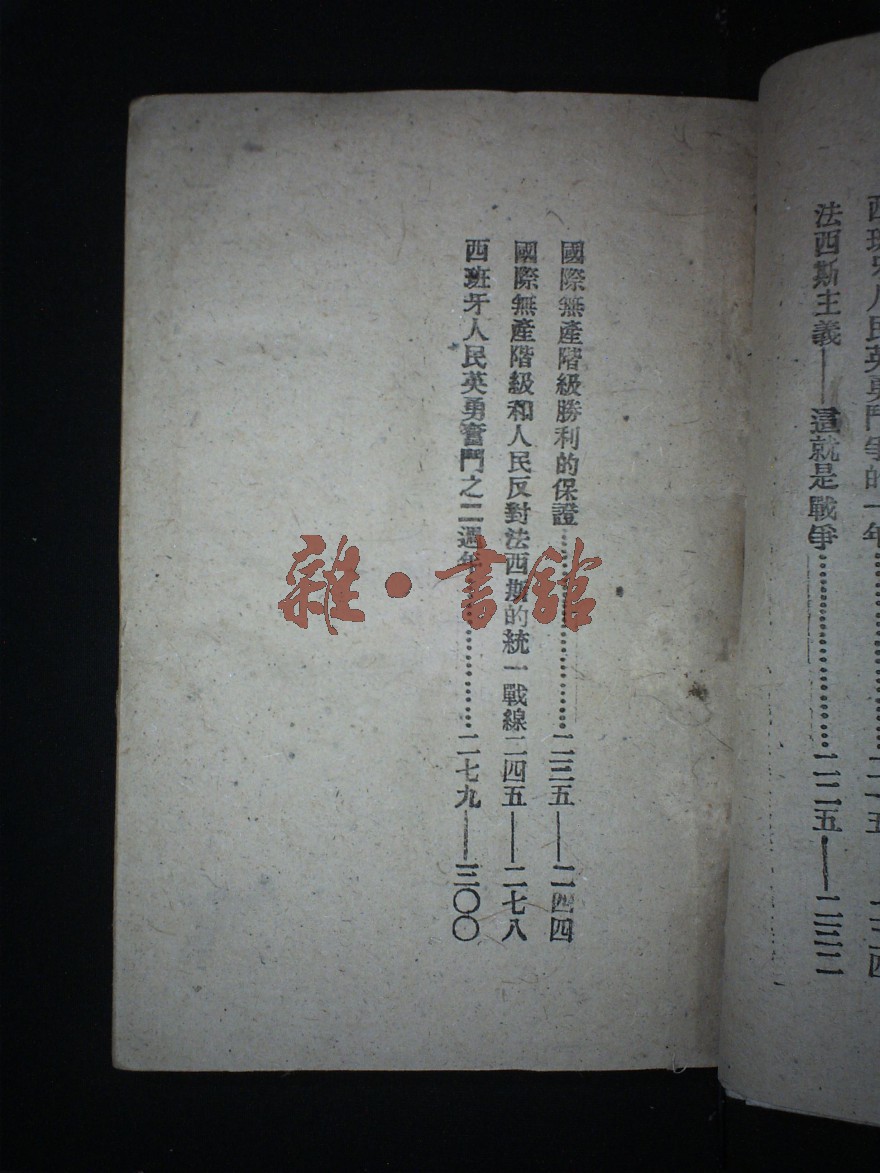 西班牙人民英勇鬥爭的一年…………二一五 二二四
法西斯主義——這就是戰爭…………二二五——二三二
國際無產階級勝利的保證…………二三五——二四四
國際無產階級和人民反對法西斯的統一戰線二四五——二七八
西班牙人民英勇奮鬥之二週年…………二七九——三〇〇
雜·書館